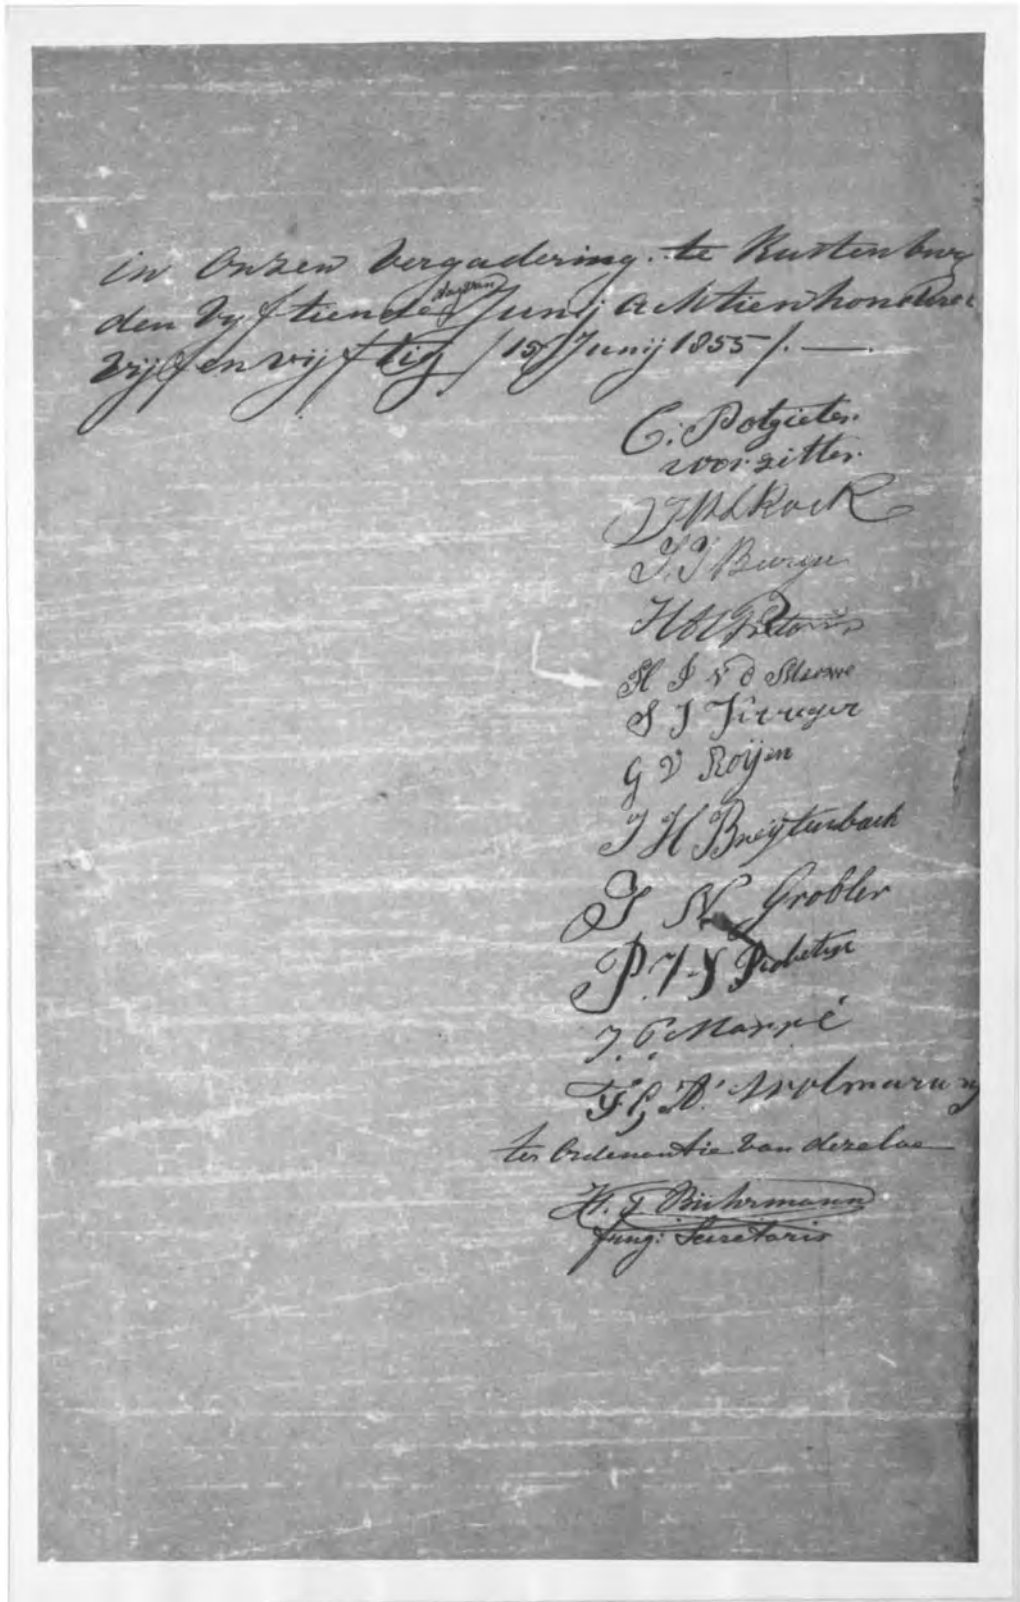 in onzen vergadering te Rustenburg
den vyftiende dag van Junij achtienhonderd
vijf en vijftig /15 Junij 1855/. —
C: Potgieter
voorzitter
Kock
J. J Burger
Pretorius
H J v d Merwe
S J Kruger
G V Roijen
J H Breijtenbach
J N Grobler
P. J.
J. C. Marré
F. G. A. Wolmarans
ter Ordenantie van dezelve
H. T. Bührmann
fung: Secretaris